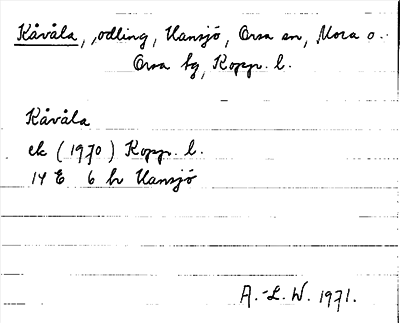 Kåvåla, odling, Hansjö, Orsa sn, Mora o.
Orsa tg, Kopp. l.
Kåvåla
ek (1970) Kopp. l.
14 E 6 h Hansjö
A.-L. W. 1971.